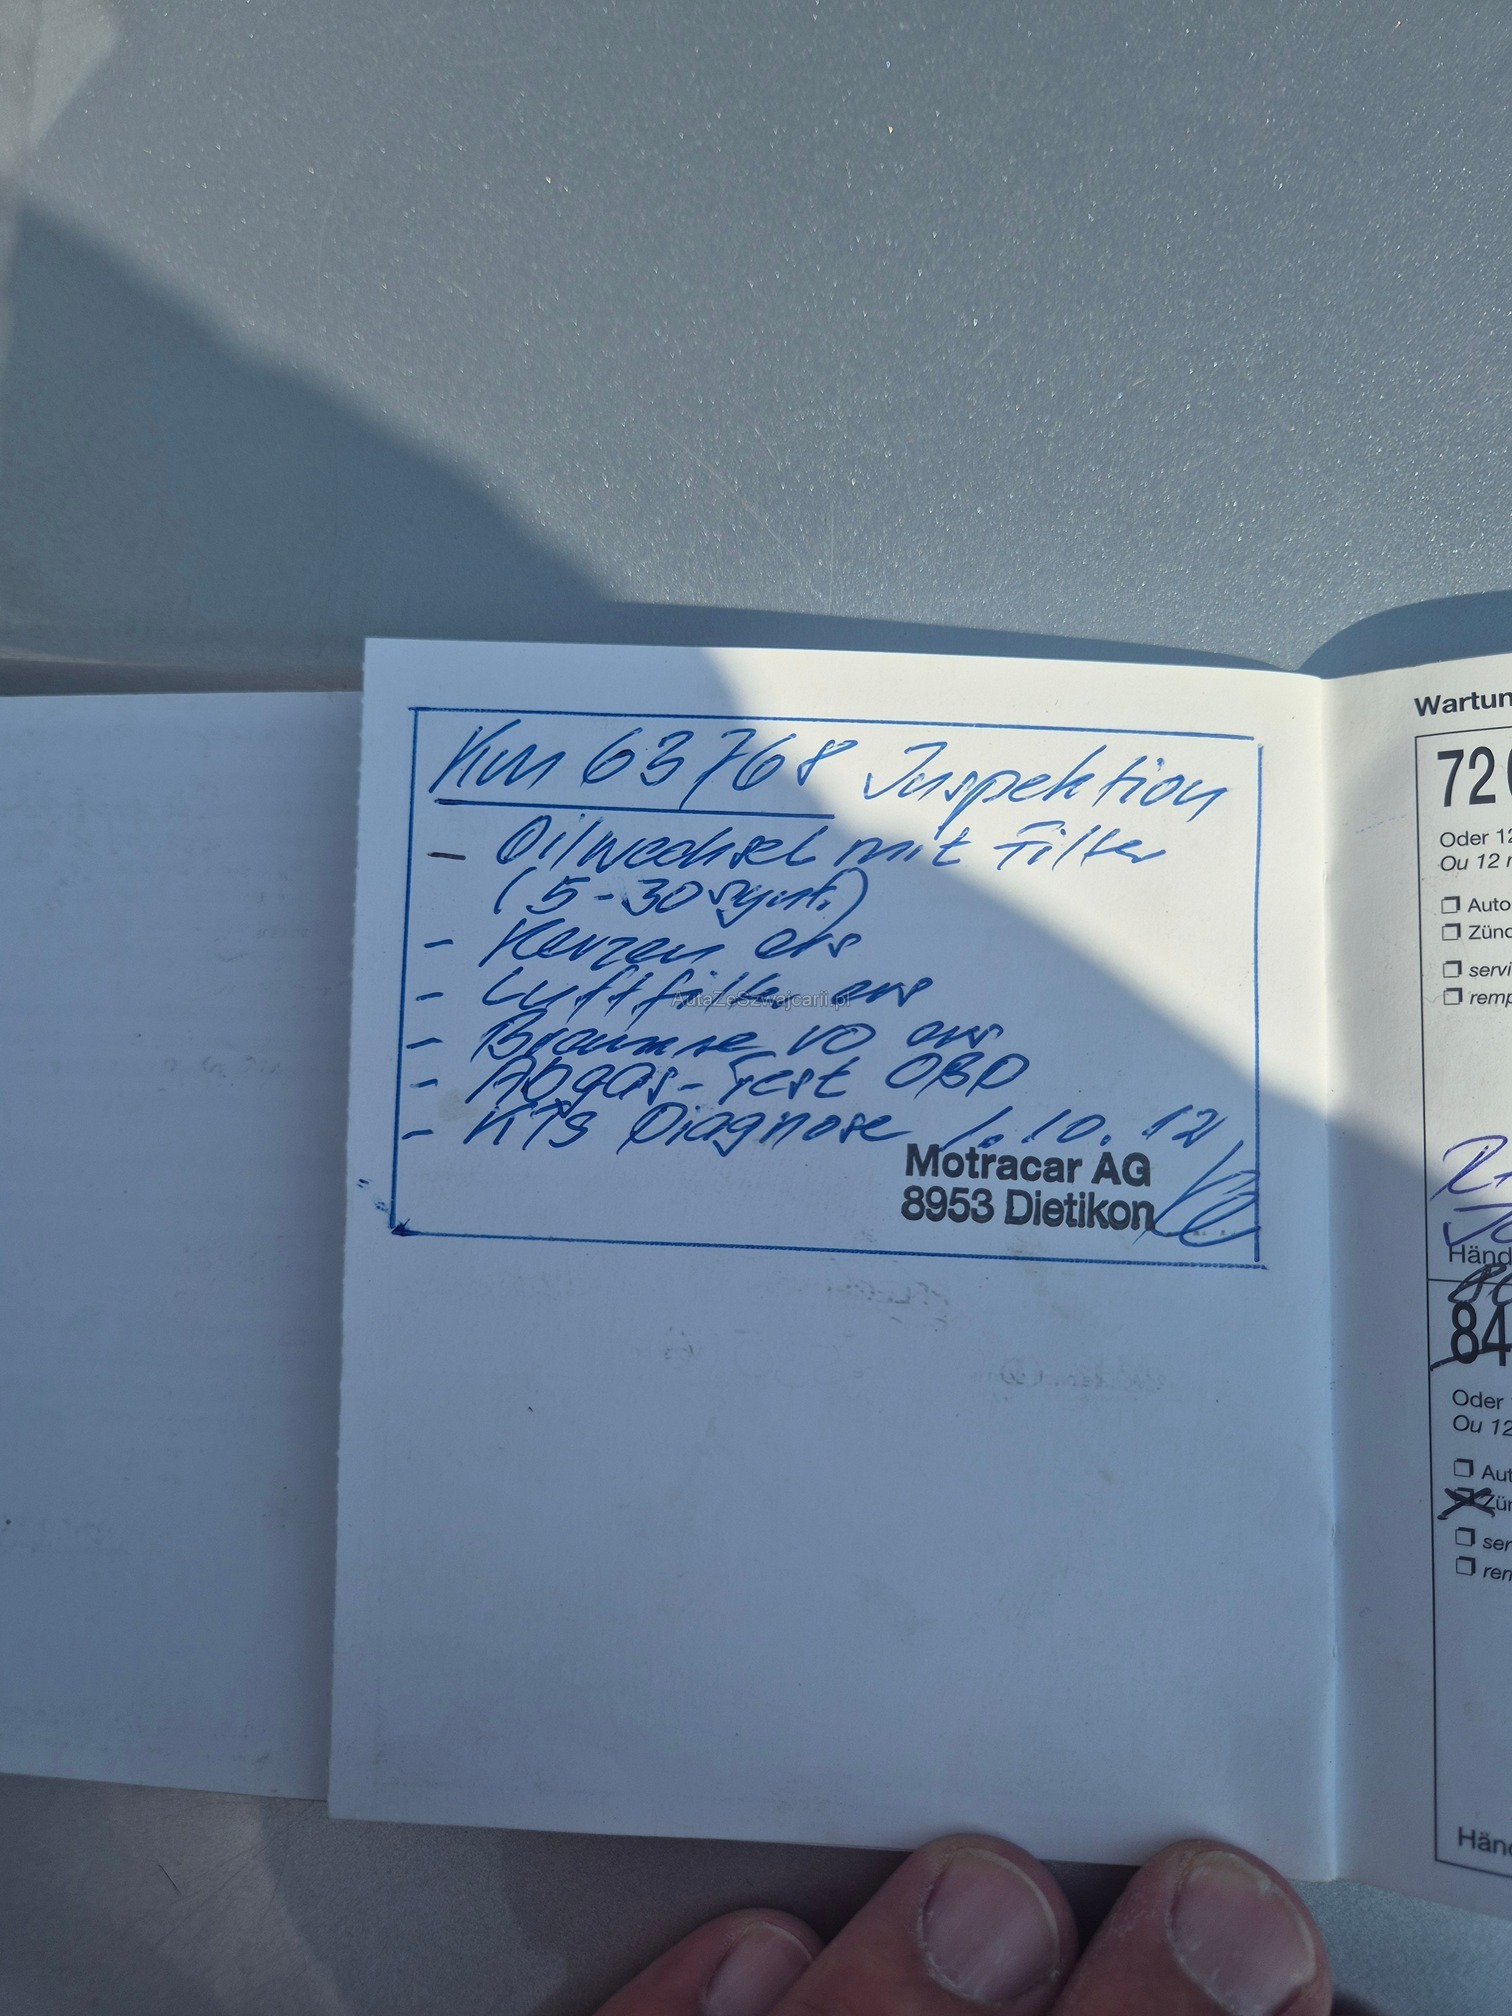 Km 63768 Inspektion
- Oilwechsel mit Filter
(5-30 synt.)
- Kerzen ers
- Luftfilter ers
- Bremse vo ers
- Abgas-Test OBD
- KTS Diagnose 1.10.12
Motracar AG
8953 Dietikon
AutaZeSzwajcarii.pl
Wartun
72 0
Oder 12
Ou 12 m
Auto
Zünd
servi
remp
Händ
84
Oder
Ou 12
Aut
Zün
ser
rem
Händ